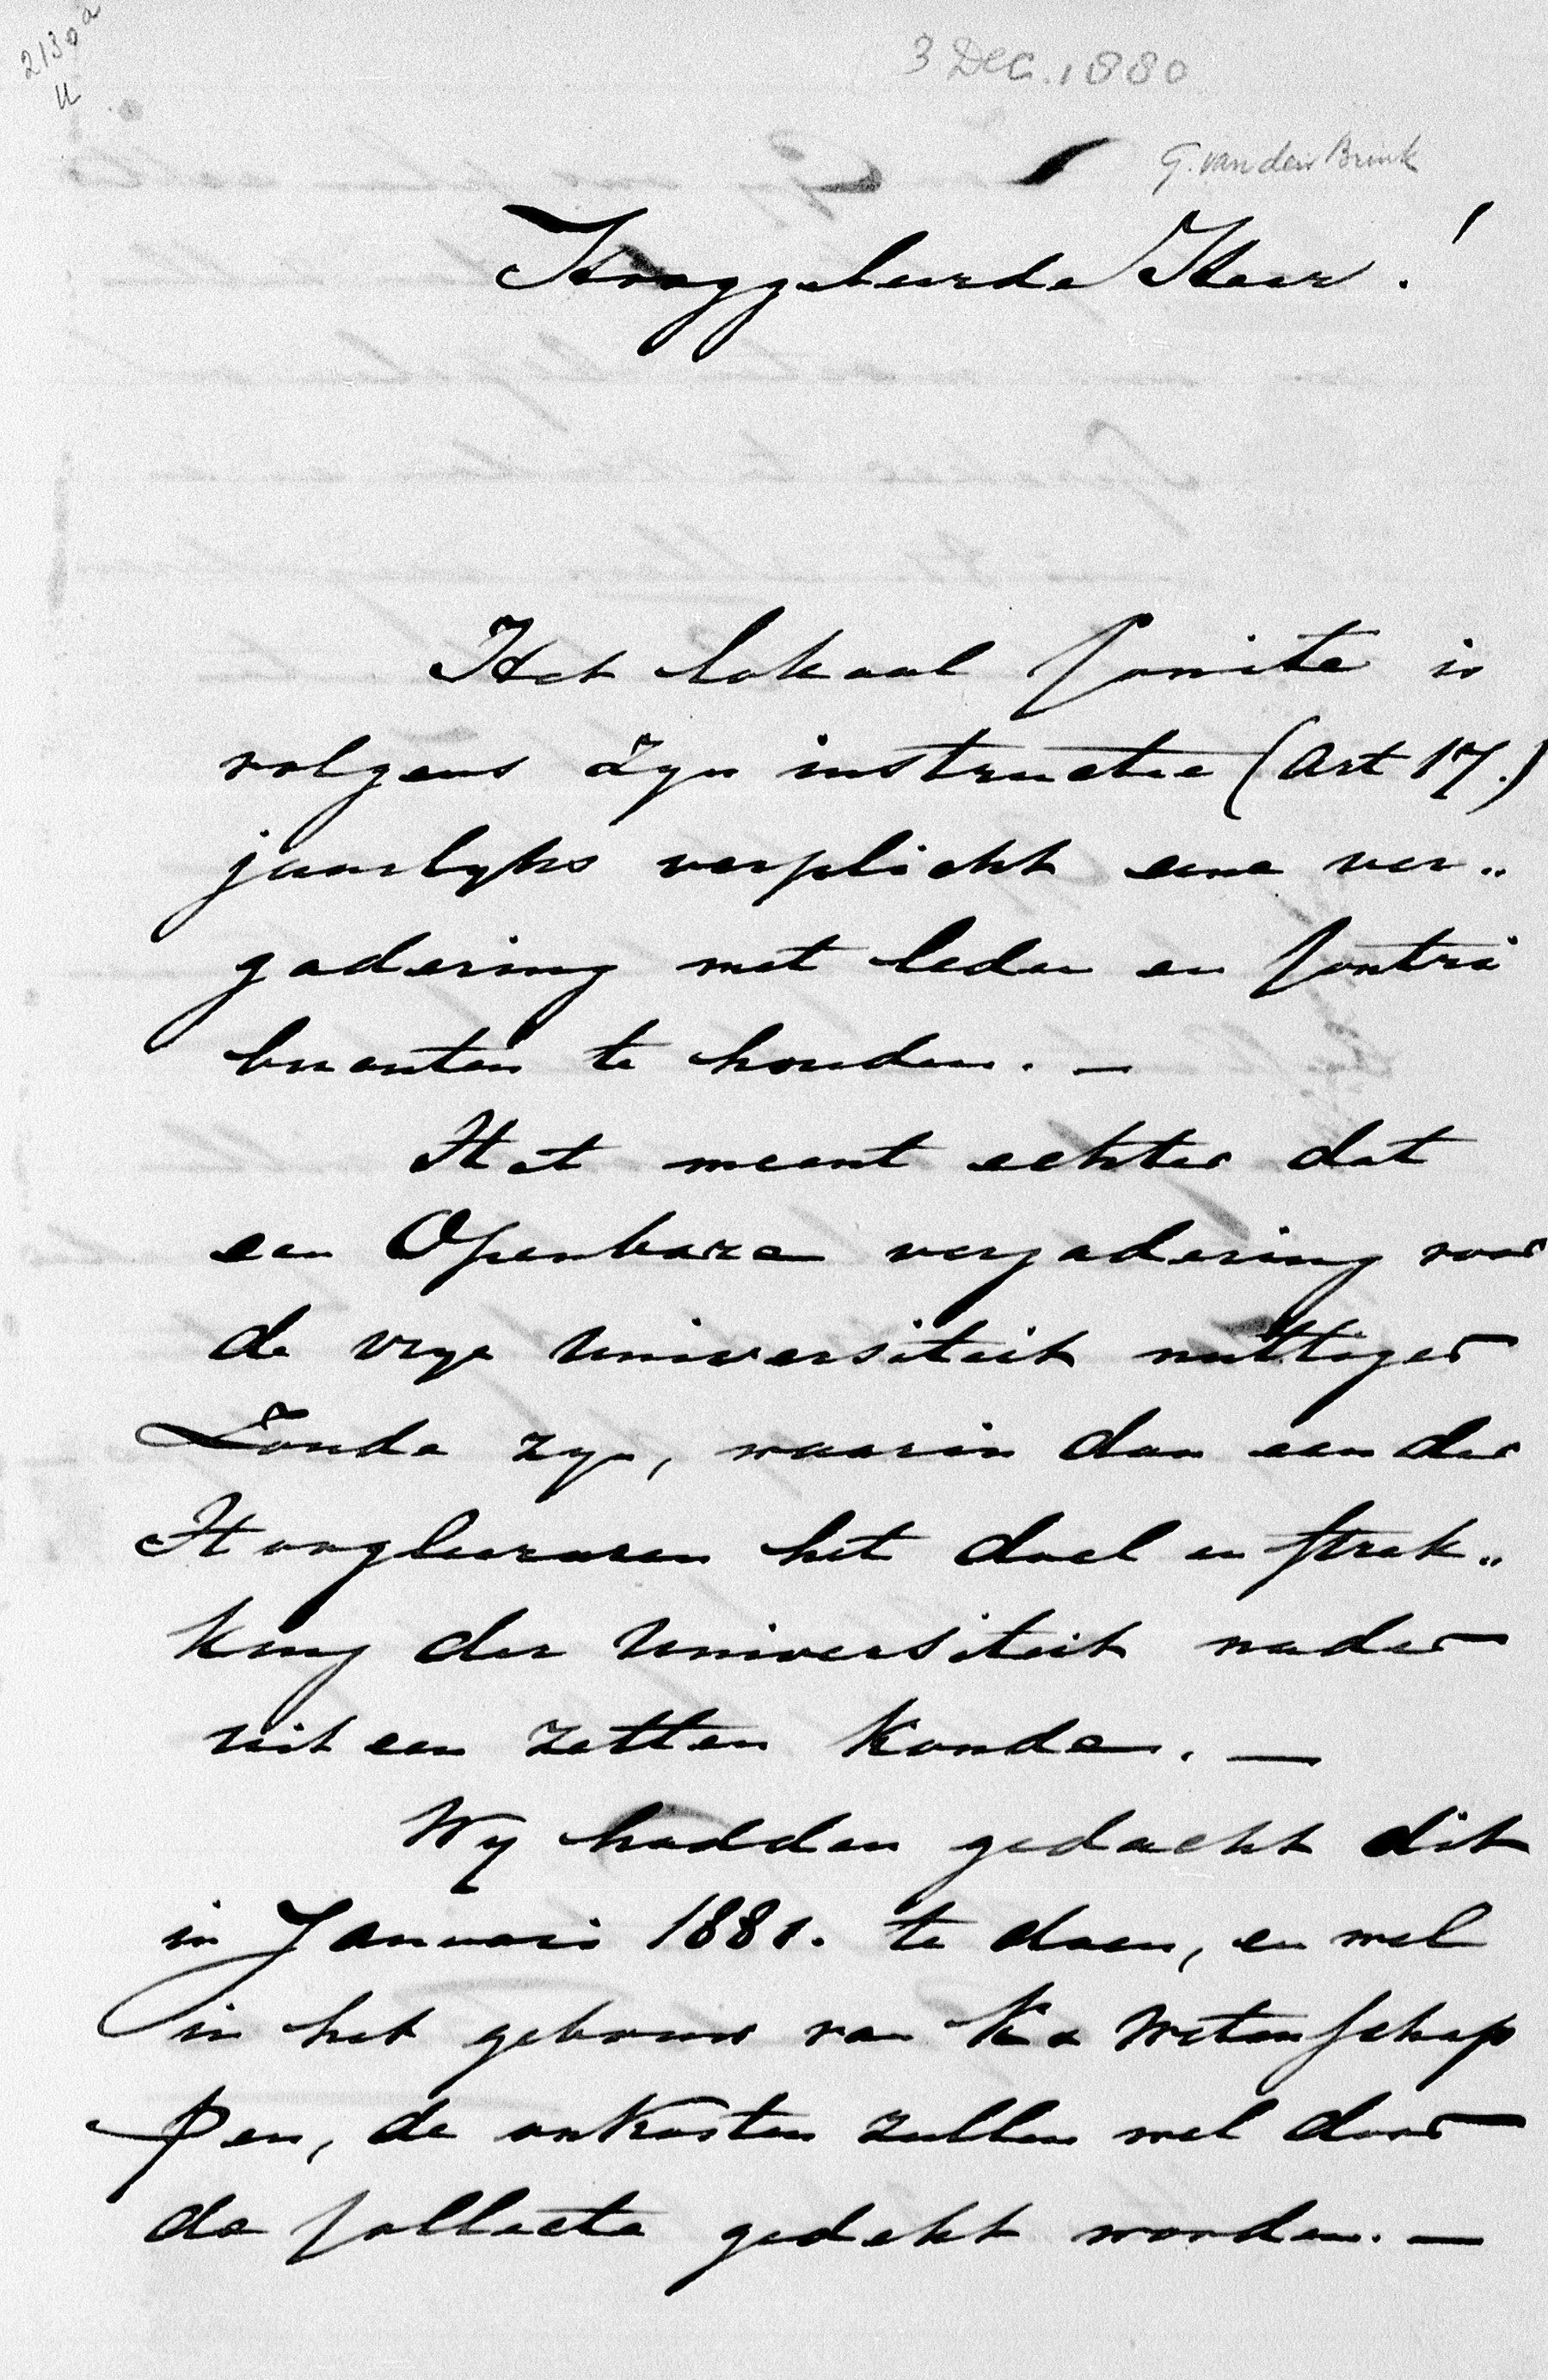 2130a
u
3 Dec. 1880
G. van den Brink
Hooggeleerde Heer!
Het lokaal Comité is
volgens zyn instructie (Art 17.)
jaarlyks verplicht eene ver„
gadering met leden en Contri
buanten te houden. —
Het meent echter dat
een Openbare vergadering voor
de vrye Universiteit nuttiger
Zoude zyn, waarin dan een der
Hoogleeraren het doel en strek„
king der Universiteit nader
uit een zetten konde. —
Wy hadden gedacht dit
in Januari 1881. te doen, en wel
in het gebouw van K & Wetenschap
pen, de onkosten zullen wel door
de Collecte gedekt worden. —